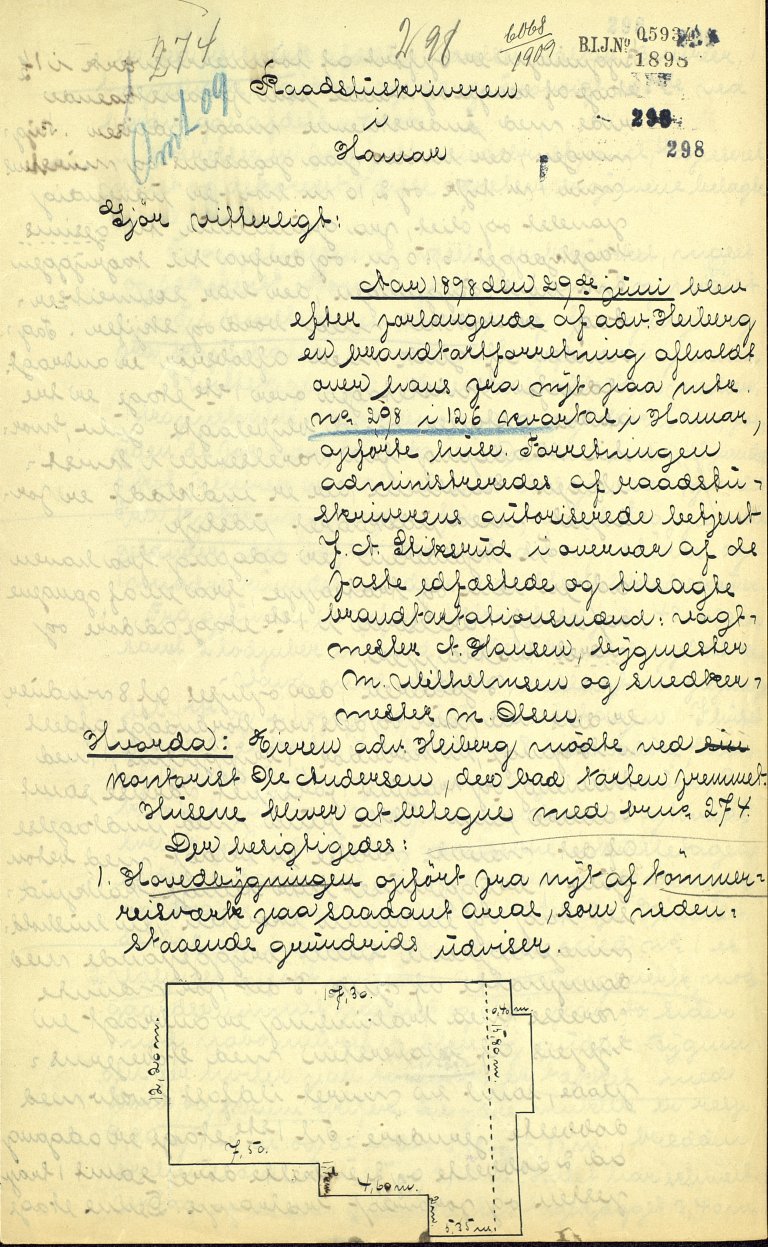 274
298
6068
1909
B.I.J.No 05934
1898
298
298
Amt 09
Raadstuskriveren
i
Hamar
Gjör vitterligt:
Aar 1898 den 29de juni blev
efter forlangende af adv. Heiberg
en brandtaxtforretning afholdt
over hans fra nyt paa mtr.
no. 298 i 126 kvartal i Hamar,
opførte huse. Forretningen
administreredes af raadstu-
skriverens autoriserede betjent
J. A. Stikerud i overvær af de
faste edfæstede og tilsagte
brandtaxtationsmænd: vagt-
mester A. Hansen, bygmester
M. Wilhelmsen og snedker-
mester M. Olsen.
Hvorda: Eieren adv. Heiberg mödte ved
kontorist Ole Andersen, der bad taxten fremmet.
Husene bliver at betegne med brno. 274.
Der besigtigedes:
1. Hovedbygningen opfört fra nyt af tömmer-
reisværk paa saadant areal, som neden-
staaende grundrids udviser.
17,30.
0,40 m
12,20 m.
15,80 m.
7,50.
4,60 m.
5,35 m.